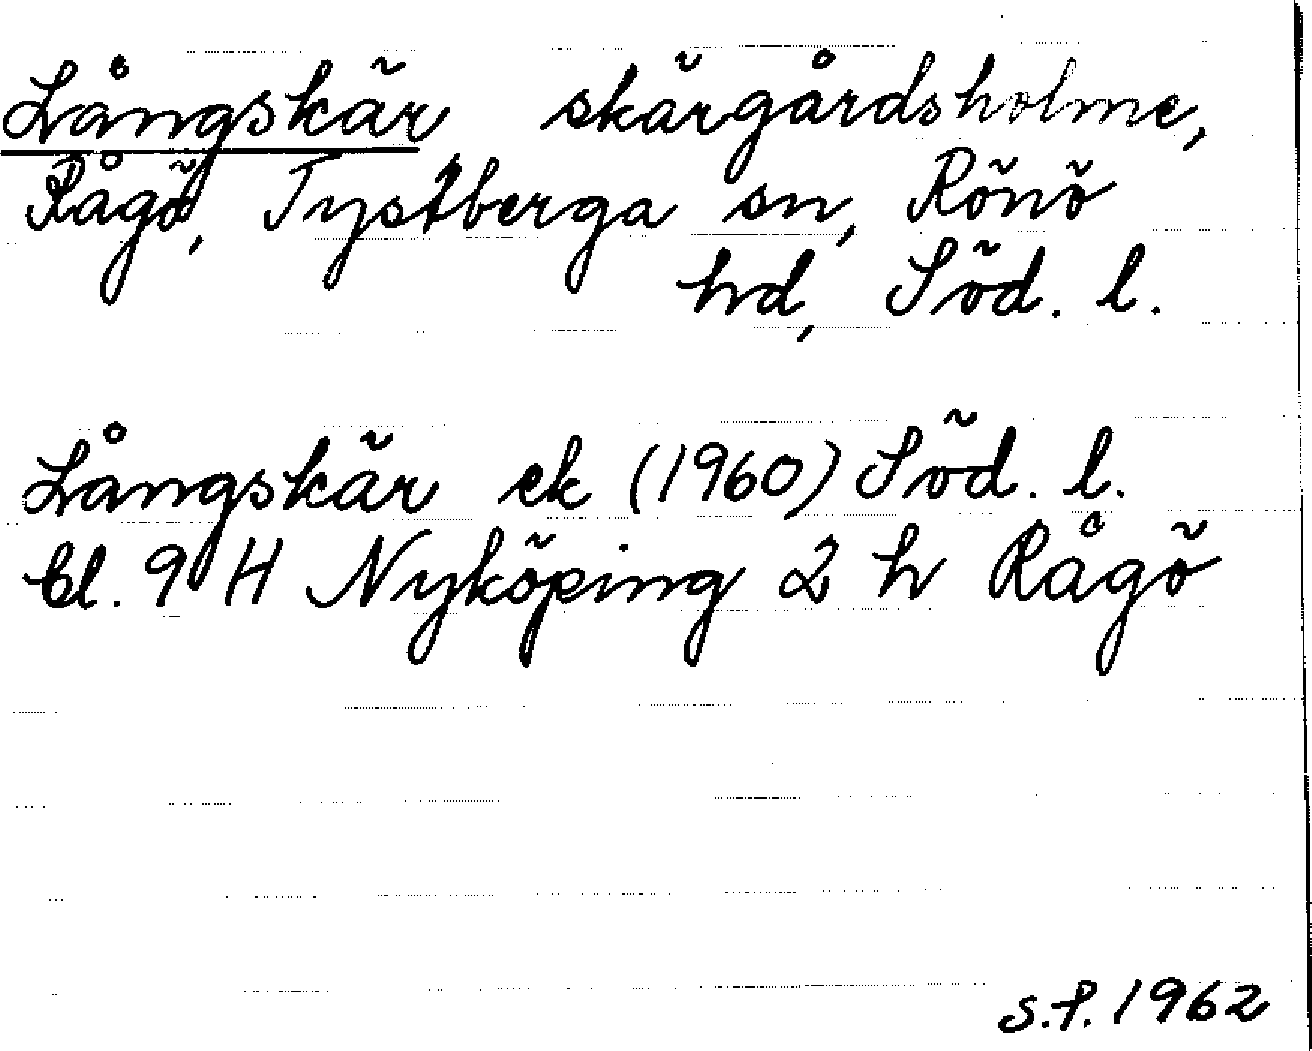 Långskär skärgårdsholme,
Rågö, Tystberga sn, Rönö
hd, Söd. l.
Långskär ek (1960) Söd. l.
bl. 9 H Nyköping 2 h Rågö
S.P. 1962